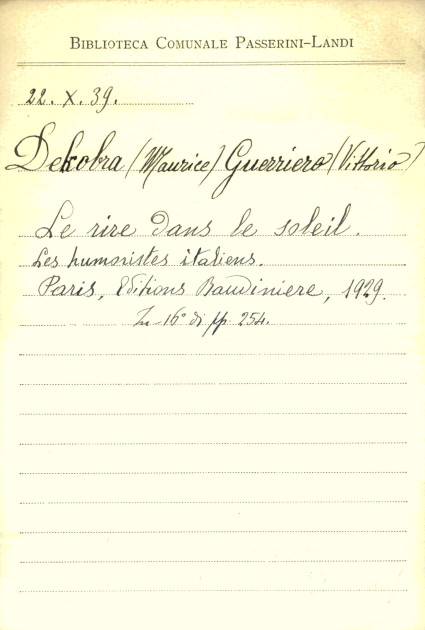 BIBLIOTECA COMUNALE PASSERINI-LANDI
22. X. 39.
Dekobra (Maurice) Guerriero (Vittorio)
Le rire dans le soleil.
Les humoristes italiens.
Paris, Editions Baudiniere, 1929.
In-16° di pp. 254.